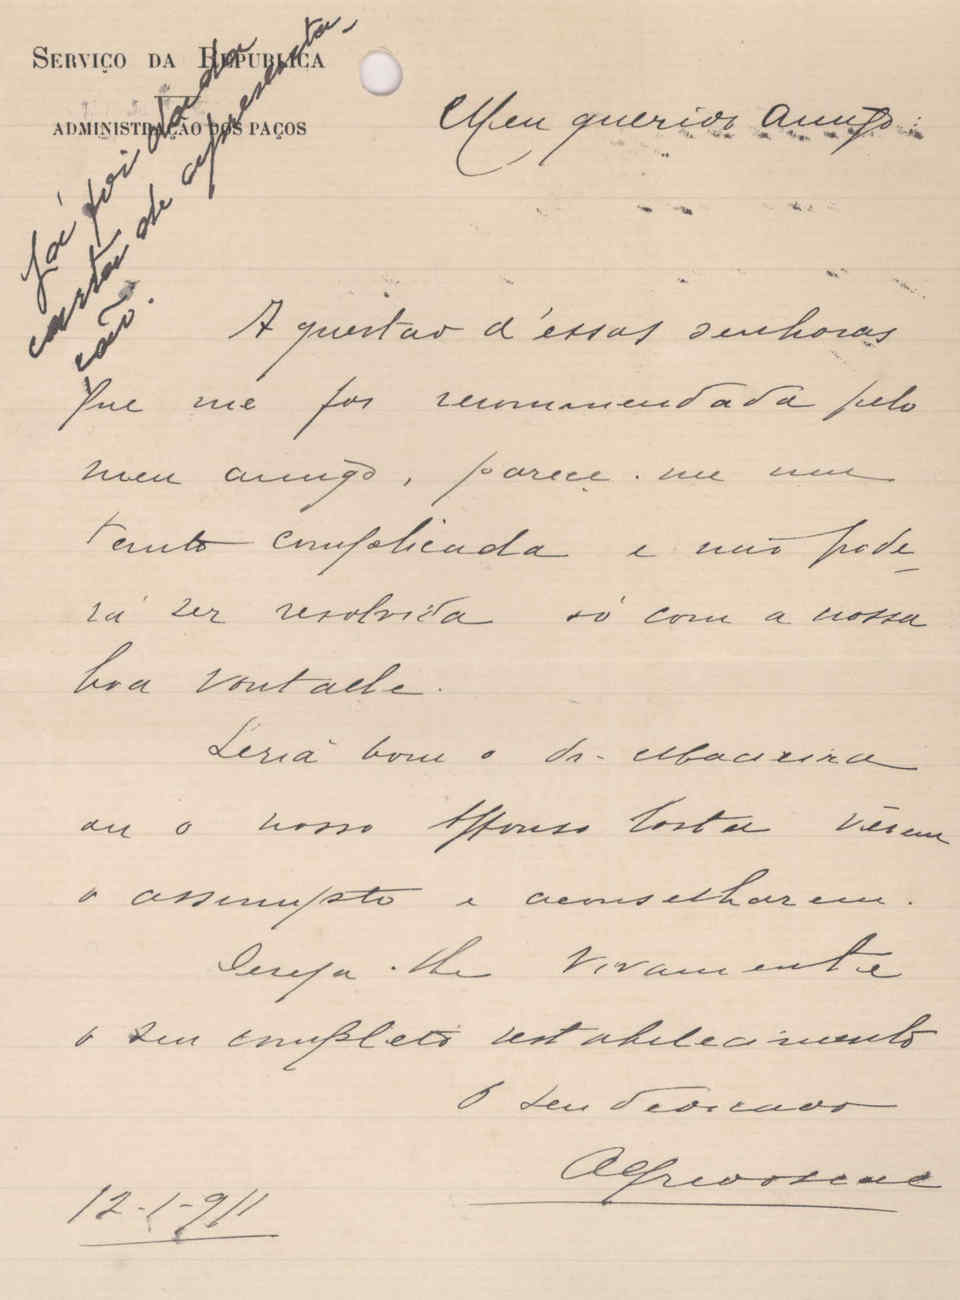 SERVIÇO DA REPUBLICA
ADMINISTRAÇÃO DOS PAÇOS
Já foi dada
carta de apresenta-
ção.
Meu querido amigo:
A questão d'essas senhoras
que me foi recommendada pelo
meu amigo, parece-me um
tanto complicada e não pode-
rá ser resolvida só com a nossa
boa vontade.
Seria bom o dr. Macieira
ou o nosso Affonso Costa vêrem
o assumpto e aconselharem.
Deseja-lhe vivamente
o seu completo restabelecimento
O seu dedicado
12-1-911